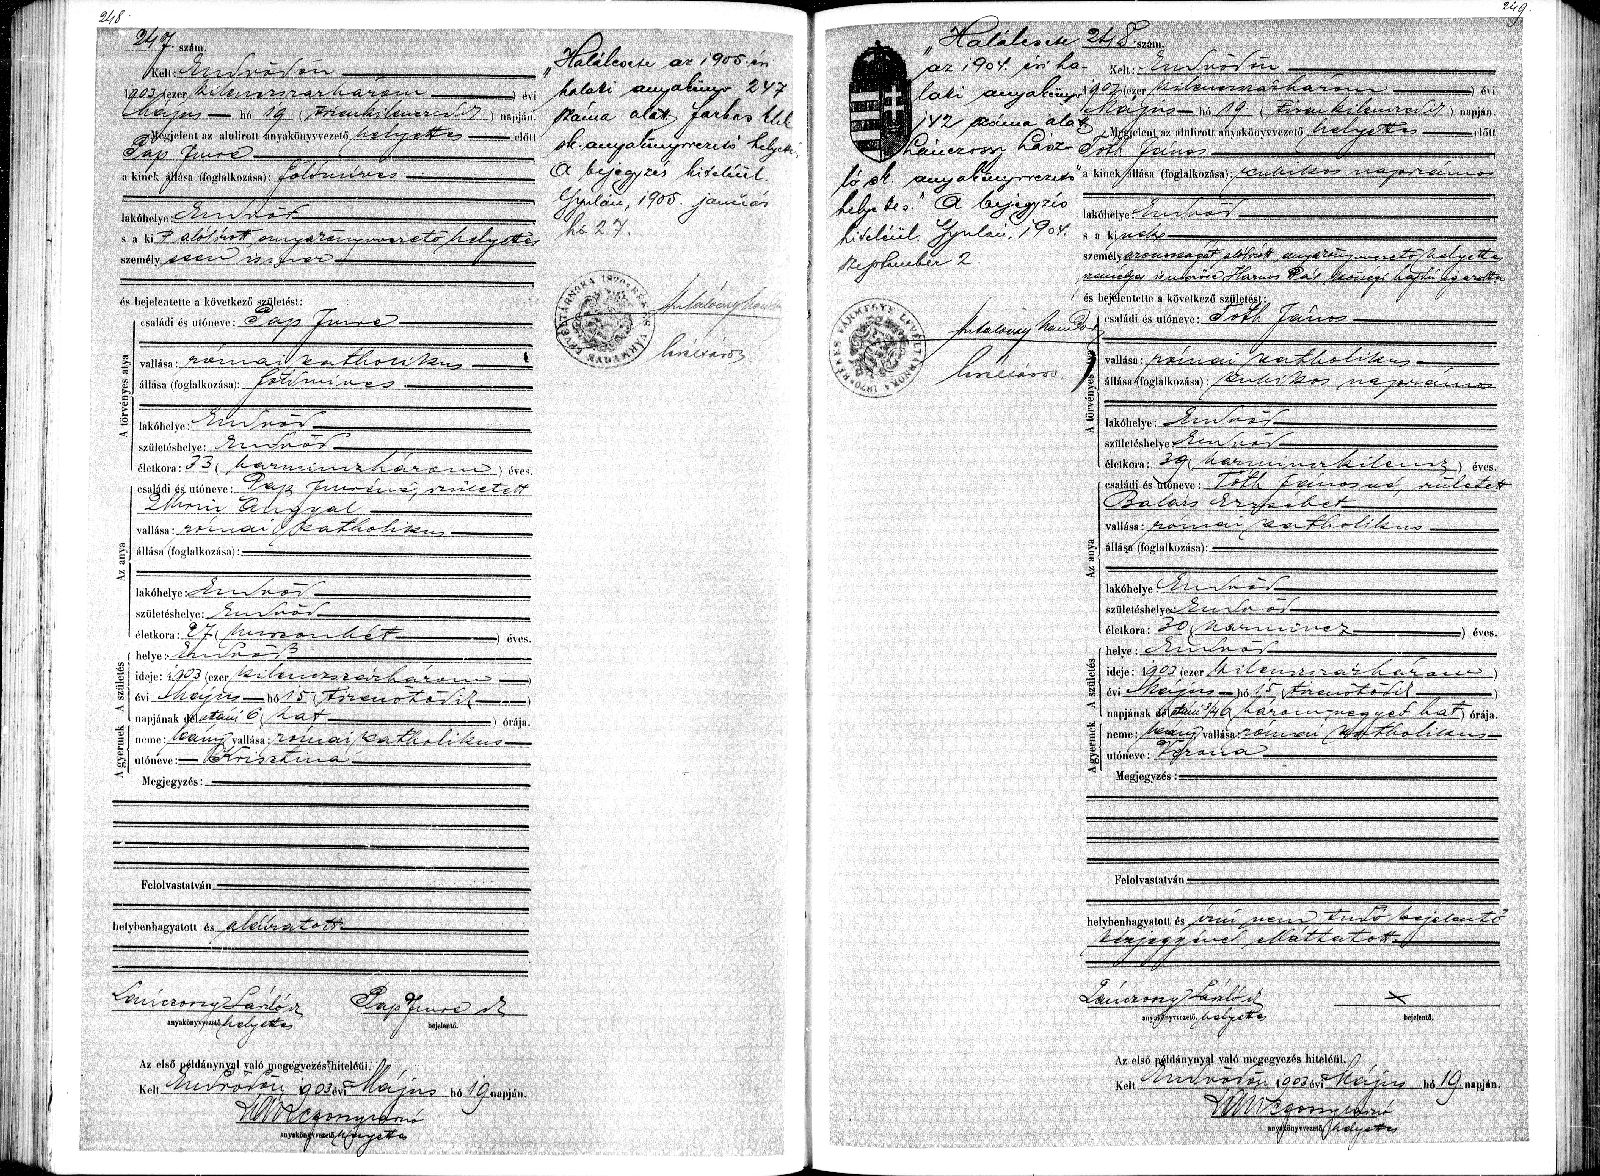 248.
247 szám.
Kelt: Endrődön
1903 (ezer kilenczszázhárom) évi
Május hó 19 (tizenkilenczedik) napján.
Megjelent az alulirott anyakönyvvezető helyettes előtt
Pap Imre
a kinek állása (foglalkozása): földmives
lakóhelye: Endrőd
s a kit alólirott anyakönyvvezető helyettes
személyesen ismer
és bejelentette a következő születést:
A törvényes atya
családi és utóneve: Pap Imre
vallása: római katholikus
állása (foglalkozása): földmives
lakóhelye: Endrőd
születéshelye: Endrőd
életkora: 33 (harminczhárom) éves.
Az anya
családi és utóneve: Pap Imréné, született
Angyal
vallása: római katholikus
állása (foglalkozása):
lakóhelye: Endrőd
születéshelye: Endrőd
életkora: 27 (huszonhét) éves.
A születés
helye: Endrőd
ideje: 1903 (ezer kilenczszázhárom)
évi Május hó 15 (tizenötödik)
napjának délutáni 6 (hat) órája.
A gyermek
neme: leány vallása: római katholikus
utóneve: Krisztina
Megjegyzés:
Felolvastatván,
helybenhagyatott és aláiratott
Lánczossy László Pap Imre sk
anyakönyvvezető helyettes bejelentő.
Az első példánynyal való megegyezés hiteléül.
Kelt Endrődön 1903 évi Május hó 19 napján.
anyakönyvvezető helyettes
"Halálesete az 1905. évi
halaki anyakönyv 247
száma alatt Farkas
sk. anyakönyvvezető helyettes.
A bejegyzés hiteléül.
Gyulán, 1905. január
hó 27.
BÉKÉS VÁRMEGYE LEVÉLTÁRNOKA 1870
levéltáros
249.
248 szám.
Kelt: Endrődön
1903 (ezer kilenczszázhárom) évi
Május hó 19 (tizenkilenczedik) napján.
Megjelent az alulirott anyakönyvvezető helyettes előtt
Tóth János
a kinek állása (foglalkozása): kubikos napszámos
lakóhelye: Endrőd
s a kinek
személyazonosságát alólirott anyakönyvvezető helyettes
személyes ismerőse Harnos Pál községi
és bejelentette a következő születést:
A törvényes
családi és utóneve: Tóth János
vallása: római katholikus
állása (foglalkozása): kubikos napszámos
lakóhelye: Endrőd
születéshelye: Endrőd
életkora: 39 (harminczkilencz) éves.
Az anya
családi és utóneve: Tóth Jánosné, született
Balázs Erzsébet
vallása: római katholikus
állása (foglalkozása):
lakóhelye: Endrőd
születéshelye: Endrőd
életkora: 30 (harmincz) éves.
A születés
helye: Endrőd
ideje: 1903 (ezer kilenczszázhárom)
évi Május hó 15 (tizenötödik)
napjának délutáni 3/4 6 (háromnegyed hat) órája.
A gyermek
neme: leány vallása: római katholikus
utóneve: Verona
Megjegyzés:
Felolvastatván
helybenhagyatott és irni nem tudó bejelentő
kézjegyével elláttatott
Lánczossy László x
anyakönyvvezető helyettes bejelentő.
Az első példánynyal való megegyezés hiteléül.
Kelt Endrődön 1903 évi Május hó 19 napján.
anyakönyvvezető helyettes
"Halálesete
az 1904. évi ha-
laki anyakönyv
142 száma alatt
Lánczossy Lász-
ló sk anyakönyvvezető
helyettes." A bejegyzés
hiteléül. Gyulán, 1904.
szeptember 2
BÉKÉS VÁRMEGYE LEVÉLTÁRNOKA 1870
levéltáros